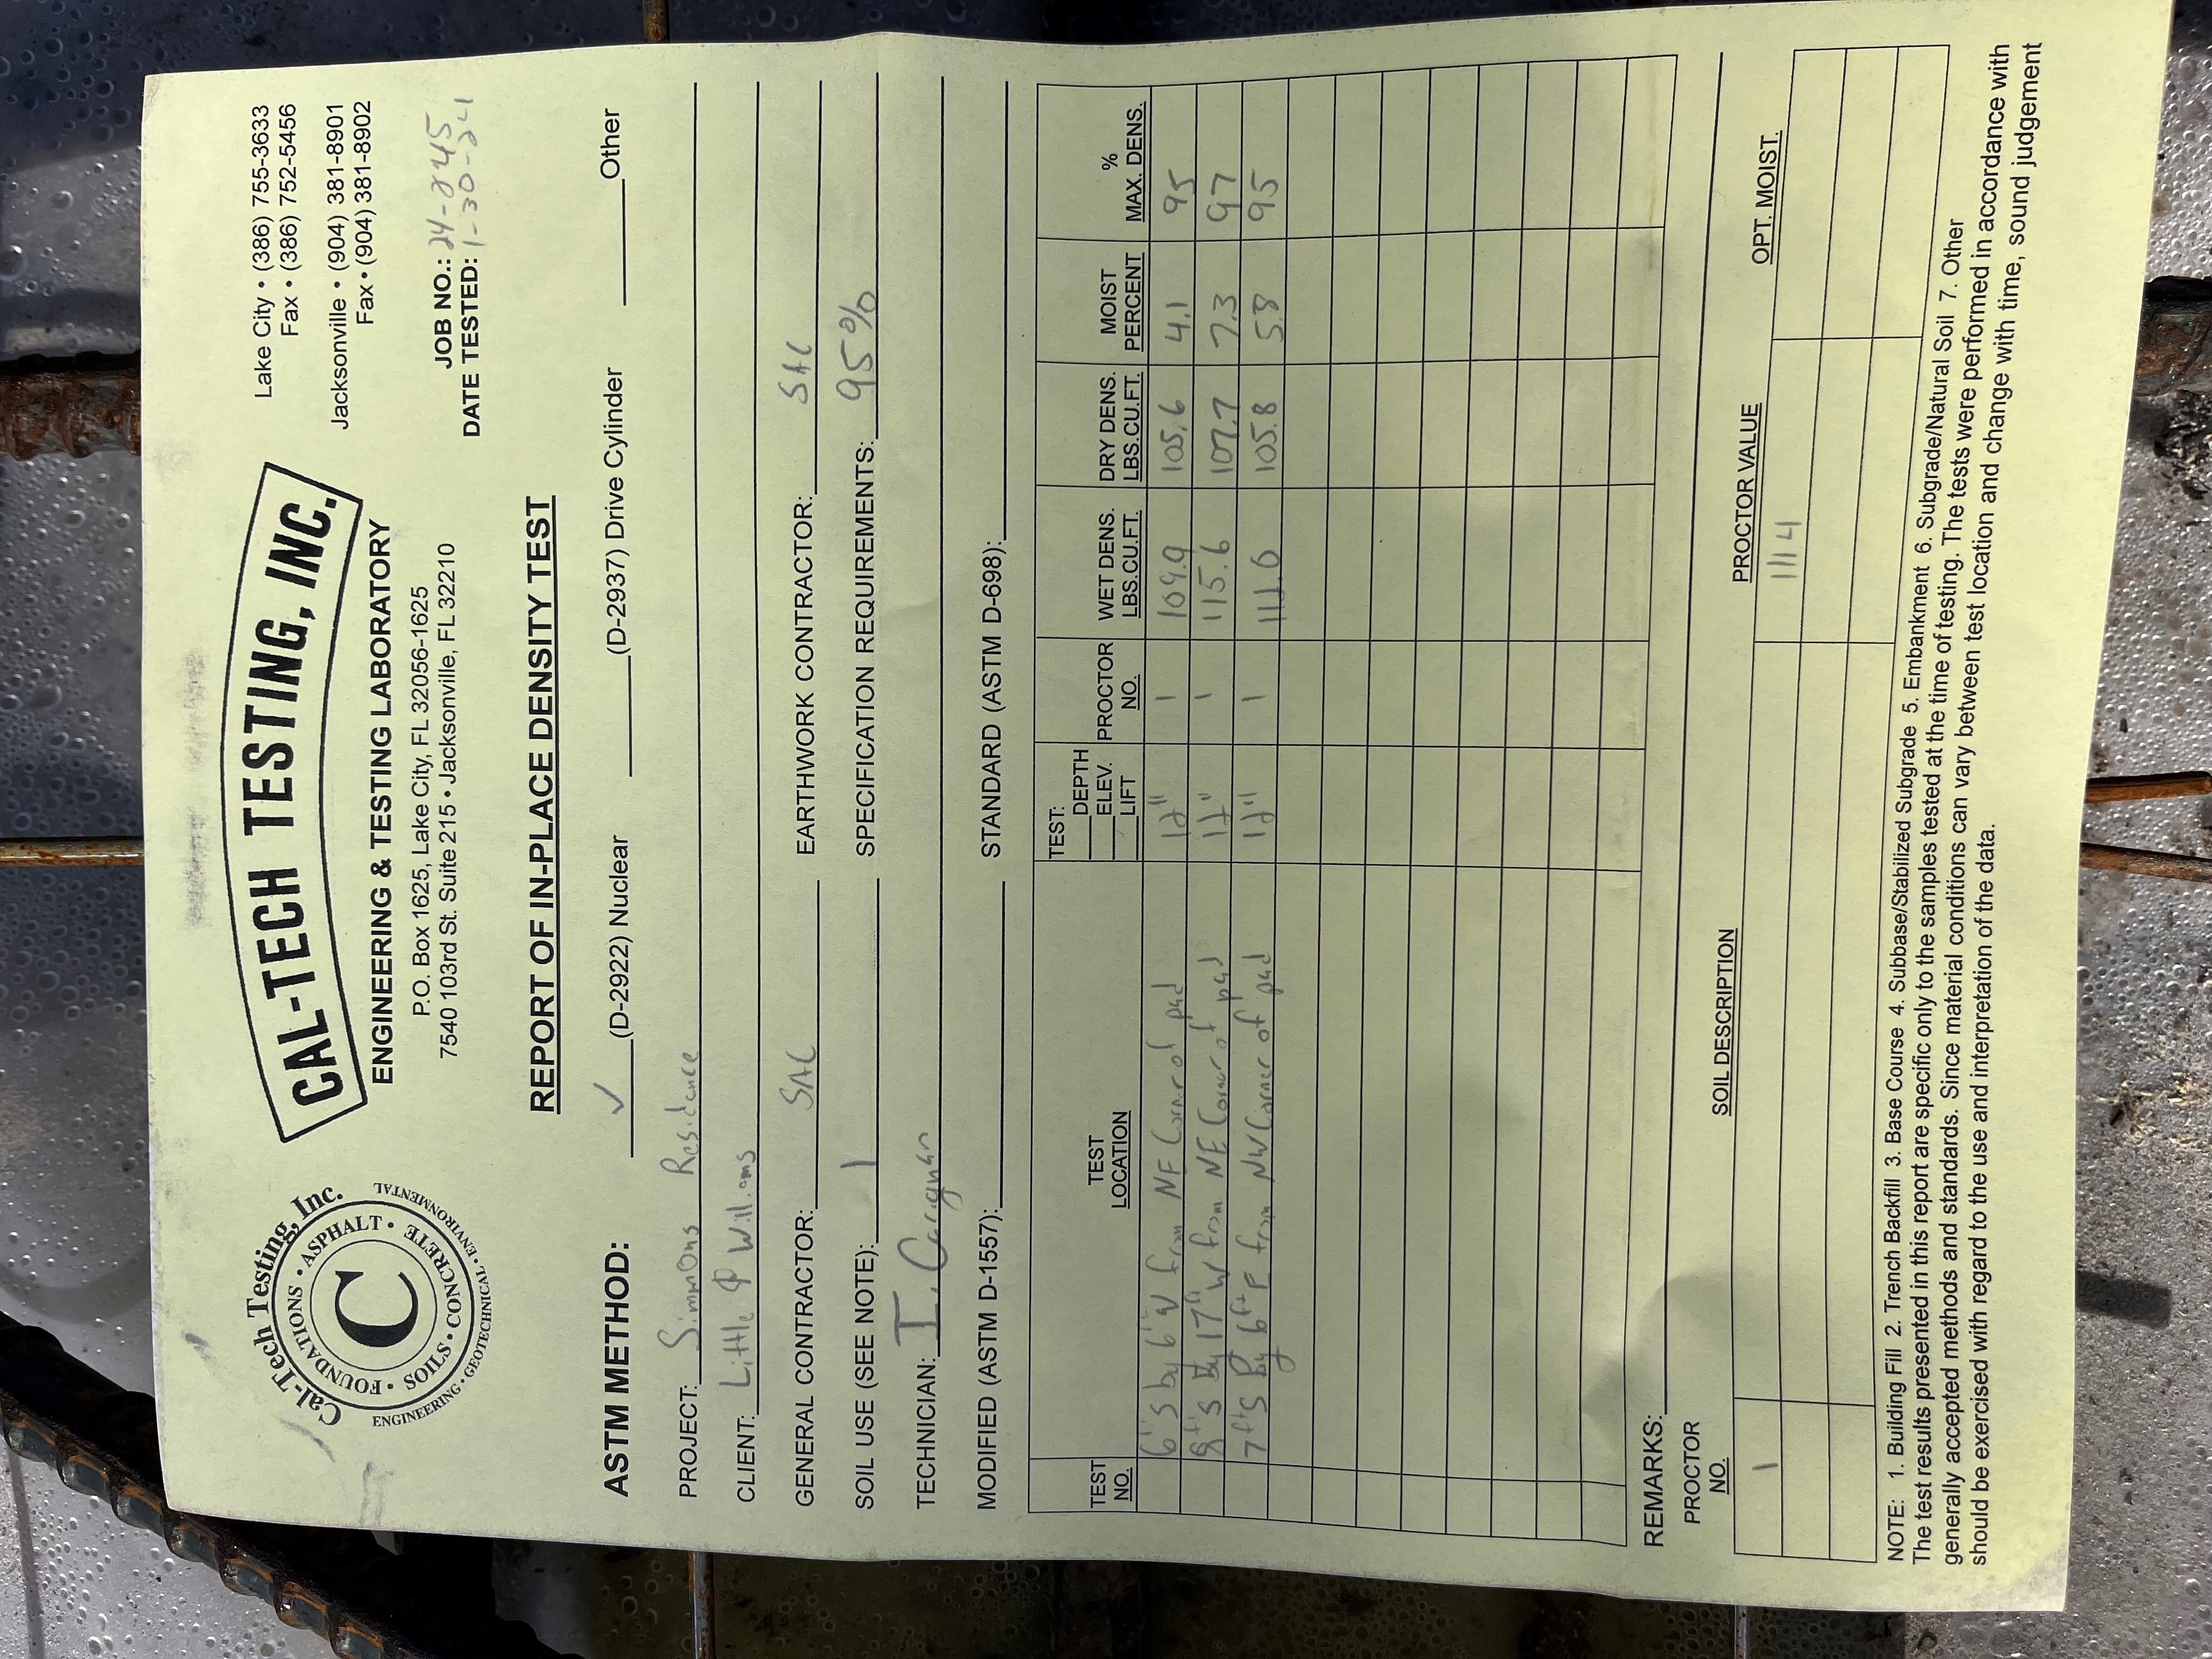 Cal-Tech Testing, Inc.
FOUNDATIONS • ASPHALT •
SOILS • CONCRETE
C
ENGINEERING • GEOTECHNICAL • ENVIRONMENTAL
CAL-TECH TESTING, INC.
ENGINEERING & TESTING LABORATORY
P.O. Box 1625, Lake City, FL 32056-1625
7540 103rd St. Suite 215 • Jacksonville, FL 32210
Lake City • (386) 755-3633
Fax • (386) 752-5456
Jacksonville • (904) 381-8901
Fax • (904) 381-8902
JOB NO.: 24-2245
DATE TESTED: 1-30-24
REPORT OF IN-PLACE DENSITY TEST
ASTM METHOD: ✓ (D-2922) Nuclear (D-2937) Drive Cylinder Other
PROJECT: Simmons Residence
CLIENT: Little & Williams
GENERAL CONTRACTOR: SAC EARTHWORK CONTRACTOR: SAC
SOIL USE (SEE NOTE): 1 SPECIFICATION REQUIREMENTS: 95%
TECHNICIAN: I. Carignan
MODIFIED (ASTM D-1557): STANDARD (ASTM D-698):
TEST NO. TEST LOCATION TEST: DEPTH ELEV. LIFT PROCTOR NO. WET DENS. LBS.CU.FT. DRY DENS. LBS.CU.FT. MOIST PERCENT % MAX. DENS.
6'S by 6' W from NE Corner of pad 12" 1 109.9 105.6 4.1 95
8ft S By 17ft W from NE Corner of pad 12" 1 115.6 107.7 7.3 97
7ft S By 6ft E from NW Corner of pad 12" 1 111.6 105.8 5.8 95
REMARKS:
PROCTOR NO. SOIL DESCRIPTION PROCTOR VALUE OPT. MOIST.
1 111.4
NOTE: 1. Building Fill 2. Trench Backfill 3. Base Course 4. Subbase/Stabilized Subgrade 5. Embankment 6. Subgrade/Natural Soil 7. Other
The test results presented in this report are specific only to the samples tested at the time of testing. The tests were performed in accordance with
generally accepted methods and standards. Since material conditions can vary between test location and change with time, sound judgement
should be exercised with regard to the use and interpretation of the data.